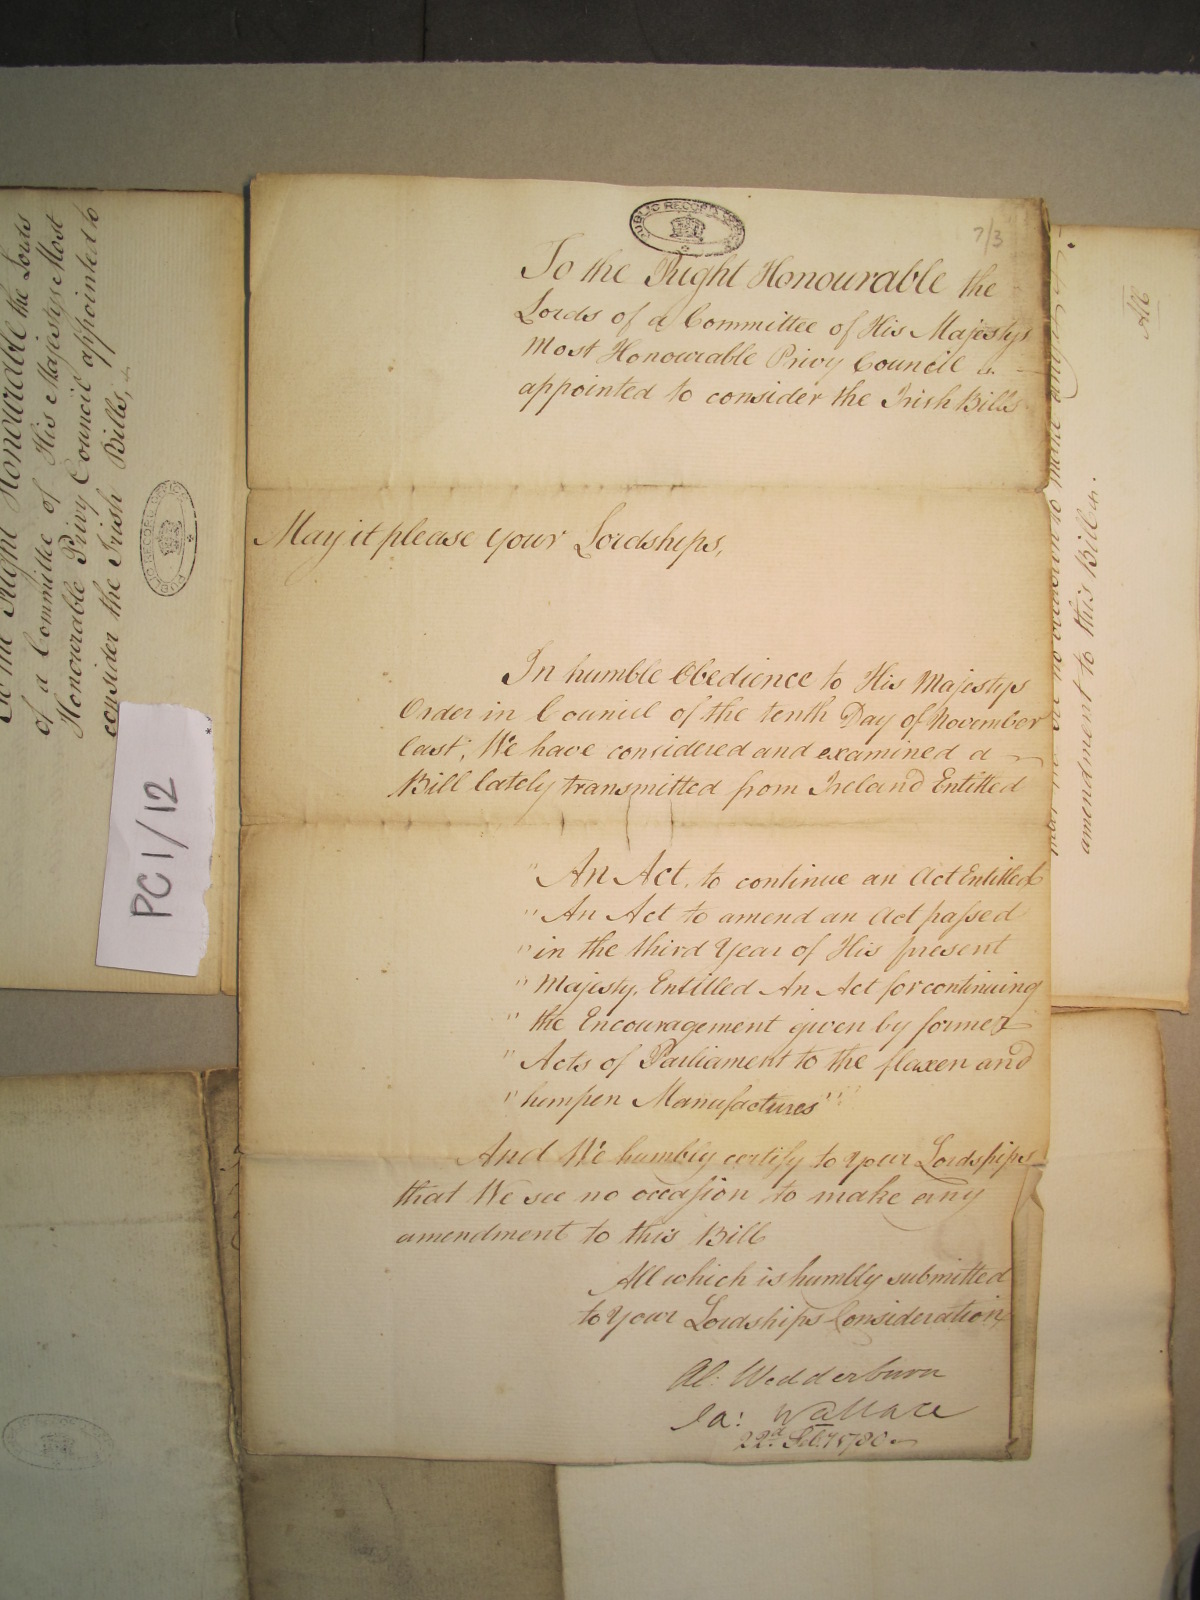 PUBLIC RECORD
7/3
To the Right Honourable the
Lords of a Committee of His Majestys
Most Honourable Privy Council
appointed to consider the Irish Bills
May it please Your Lordships,
In humble Obedience to His Majestys
Order in Council of the tenth Day of November
last, We have considered and examined a
Bill lately transmitted from Ireland Entitled
"An Act, to continue an Act Entitled
"An Act to amend an Act passed
"in the third Year of His present
"Majesty, Entitled An Act for continuing
"the Encouragement given by former
"Acts of Parliament to the flaxen and
"hempen Manufactures"
And We humbly certify to Your Lordships
that We see no occasion to make any
amendment to this Bill
All which is humbly submitted
to Your Lordships Consideration,
Al: Wedderburn
Ja: Wallace
22d. Feb.ry 1780
To the Right Honourable the Lords
of a Committee of His Majestys Most
Honourable Privy Council appointed to
consider the Irish Bills,
PUBLIC RECORD
PC 1/12
no occasion to make any
amendment to this Bill.